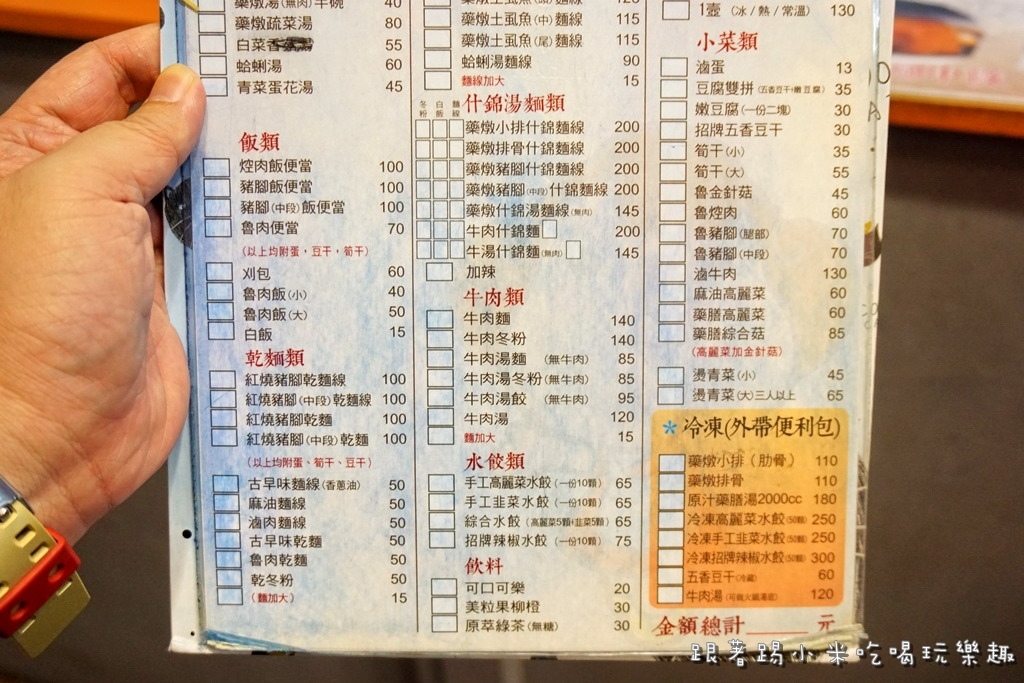 藥燉湯(無肉)半碗 40
藥燉蔬菜湯 80
白菜 55
蛤蜊湯 60
青菜蛋花湯 45
飯類
焢肉飯便當 100
豬腳飯便當 100
豬腳(中段)飯便當 100
魯肉便當 70
(以上均附蛋，豆干，筍干)
刈包 60
魯肉飯(小) 40
魯肉飯(大) 50
白飯 15
乾麵類
紅燒豬腳乾麵線 100
紅燒豬腳(中段)乾麵線 100
紅燒豬腳乾麵 100
紅燒豬腳(中段)乾麵 100
(以上均附蛋、筍干、豆干)
古早味麵線(香蔥油) 50
麻油麵線 50
滷肉麵線 50
古早味乾麵 50
魯肉乾麵 50
乾冬粉 50
(麵加大) 15
藥燉土虱魚(中)麵線 115
藥燉土虱魚(尾)麵線 115
蛤蜊湯麵線 90
麵線加大 15
冬粉 白飯 麵線
什錦湯麵類
藥燉小排什錦麵線 200
藥燉排骨什錦麵線 200
藥燉豬腳什錦麵線 200
藥燉豬腳(中段)什錦麵線 200
藥燉什錦湯麵線(無肉) 145
牛肉什錦麵 200
牛湯什錦麵(無肉) 145
加辣
牛肉類
牛肉麵 140
牛肉冬粉 140
牛肉湯麵 (無牛肉) 85
牛肉湯冬粉(無牛肉) 85
牛肉湯餃 (無牛肉) 95
牛肉湯 120
麵加大 15
水餃類
手工高麗菜水餃(一份10顆) 65
手工韭菜水餃(一份10顆) 65
綜合水餃(高麗菜5顆+韭菜5顆) 65
招牌辣椒水餃(一份10顆) 75
飲料
可口可樂 20
美粒果柳橙 30
原萃綠茶(無糖) 30
1壺 (冰/熱/常溫) 130
小菜類
滷蛋 13
豆腐雙拼(五香豆干+嫩豆腐) 35
嫩豆腐(一份二塊) 30
招牌五香豆干 30
筍干(小) 35
筍干(大) 55
魯金針菇 45
魯焢肉 60
魯豬腳(腿部) 70
魯豬腳(中段) 70
滷牛肉 130
麻油高麗菜 60
藥膳高麗菜 60
藥膳綜合菇 85
(高麗菜加金針菇)
燙青菜(小) 45
燙青菜(大)三人以上 65
*冷凍(外帶便利包)
藥燉小排(肋骨) 110
藥燉排骨 110
原汁藥膳湯2000cc 180
冷凍高麗菜水餃(50顆) 250
冷凍手工韭菜水餃(50顆) 250
冷凍招牌辣椒水餃(50顆) 300
五香豆干(冷藏) 60
牛肉湯(可做火鍋湯底) 120
金額總計 元
跟著踢小米吃喝玩樂趣